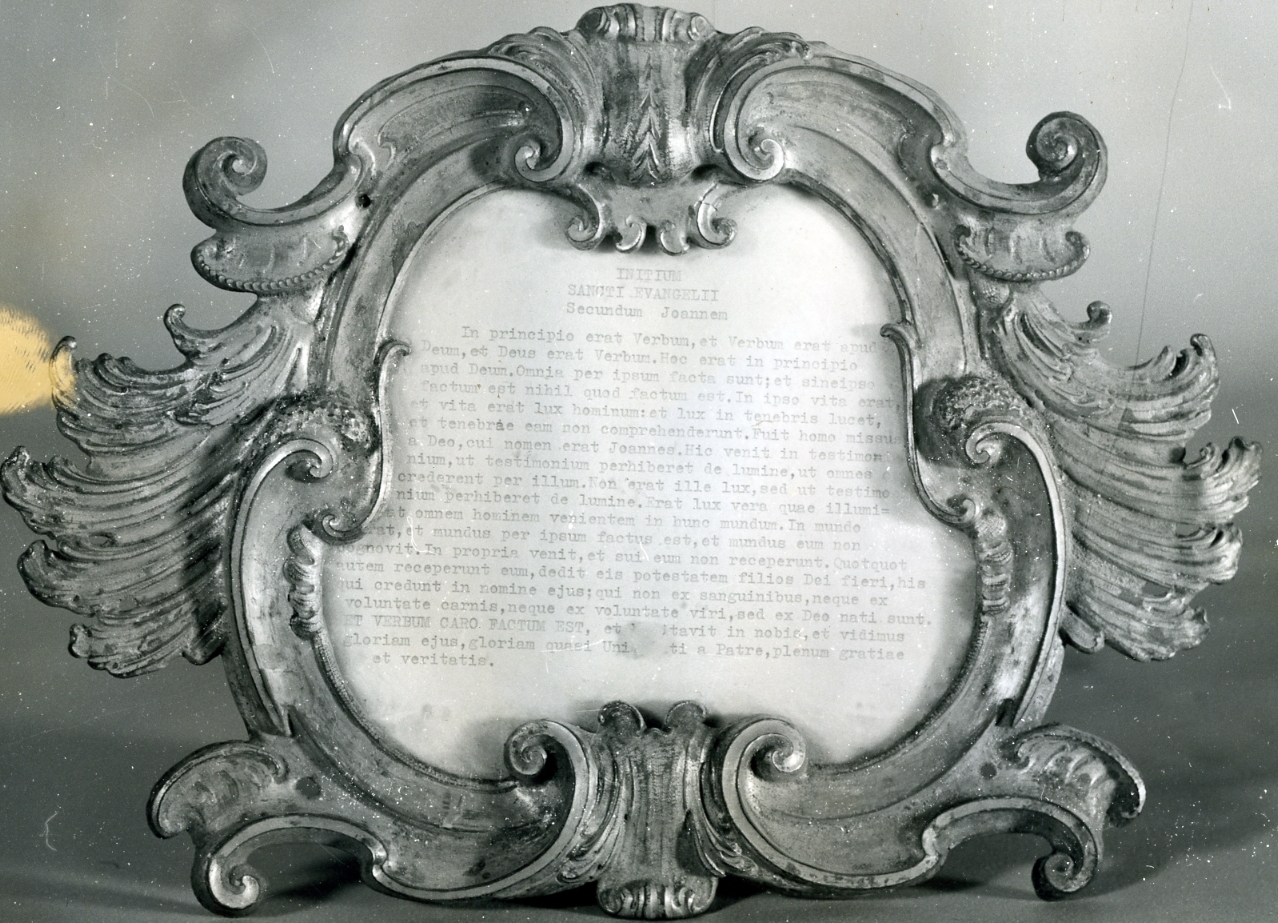 INITIUM
SANCTI EVANGELII
Secundum Joannem
In principio erat Verbum,et Verbum erat apud
Deum,et Deus erat Verbum.Hoc erat in principio
apud Deum.Omnia per ipsum facta sunt;et sineipso
factum est nihil quod factum est.In ipso vita erat
et vita erat lux hominum:et lux in tenebris lucet,
et tenebrae eam non comprehenderunt.Fuit homo missus
a Deo,cui nomen erat Joannes.Hic venit in testimon
nium,ut testimonium perhiberet de lumine,ut omnes
crederent per illum.Non erat ille lux,sed ut testimo
nium perhiberet de lumine.Erat lux vera quae illumi=
at omnem hominem venientem in hunc mundum.In mundo
rat,et mundus per ipsum factus est,et mundus eum non
cognovit.In propria venit,et sui eum non receperunt.Quotquot
autem receperunt eum,dedit eis potestatem filios Dei fieri,his
qui credunt in nomine ejus;qui non ex sanguinibus,neque ex
voluntate carnis,neque ex voluntate viri,sed ex Deo nati sunt.
ET VERBUM CARO FACTUM EST, et itavit in nobis,et vidimus
gloriam ejus,gloriam quasi Uni ti a Patre,plenum gratiae
et veritatis.